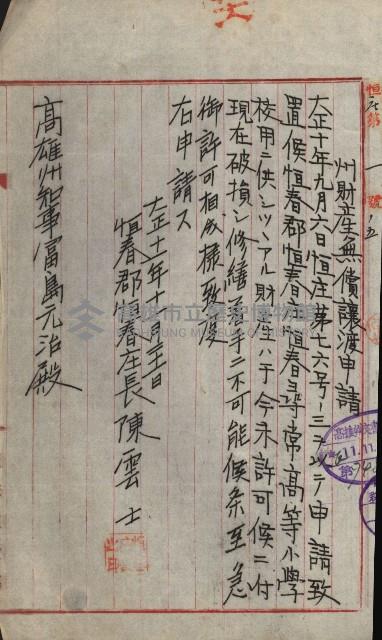 恒庄第一號ノ五
州財産無償讓渡申請
大正十年九月六日恒庄第七六号ノ三ヲ以テ申請致
置候恒春郡恒春庄恒春尋常高等小學
校用ニ供シツヽアル財産ハ于今未許可候ニ付
現在破損シ修繕等ニ不可能候条至急
御許可相成様致度
右申請ス
大正十一年十月三日
恒春郡恒春庄長陳雲士
高雄州知事富島元治殿
高雄市立歷史博物館
11.11.